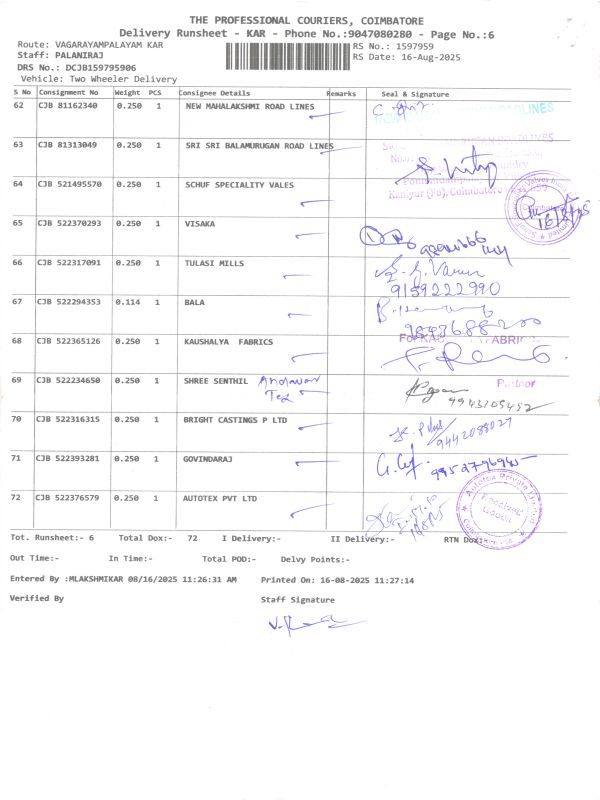 THE PROFESSIONAL COURIERS, COIMBATORE
Delivery Runsheet - KAR - Phone No.:9047080280 - Page No.:6
Route: VAGARAYAMPALAYAM KAR RS No.: 1597959
Staff: PALANIRAJ RS Date: 16-Aug-2025
DRS No.: DCJB159795906
Vehicle: Two Wheeler Delivery
S No Consignment No Weight PCS Consignee Details Remarks Seal & Signature
62 CJB 81162340 0.250 1 NEW MAHALAKSHMI ROAD LINES
63 CJB 81313049 0.250 1 SRI SRI BALAMURUGAN ROAD LINES
Kaniyur (Po), Coimbatore
64 CJB 521495570 0.250 1 SCHUF SPECIALITY VALES
65 CJB 522370293 0.250 1 VISAKA
66 CJB 522317091 0.250 1 TULASI MILLS
9159222990
67 CJB 522294353 0.114 1 BALA
68 CJB 522365126 0.250 1 KAUSHALYA FABRICS
69 CJB 522234650 0.250 1 SHREE SENTHIL Andavar
Tex
Partner
9943105452
70 CJB 522316315 0.250 1 BRIGHT CASTINGS P LTD
9442088027
71 CJB 522393281 0.250 1 GOVINDARAJ
72 CJB 522376579 0.250 1 AUTOTEX PVT LTD
Tot. Runsheet:- 6 Total Dox:- 72 I Delivery:- II Delivery:- RTN Dox:-
Out Time:- In Time:- Total POD:- Delvy Points:-
Entered By :MLAKSHMIKAR 08/16/2025 11:26:31 AM Printed On: 16-08-2025 11:27:14
Verified By Staff Signature